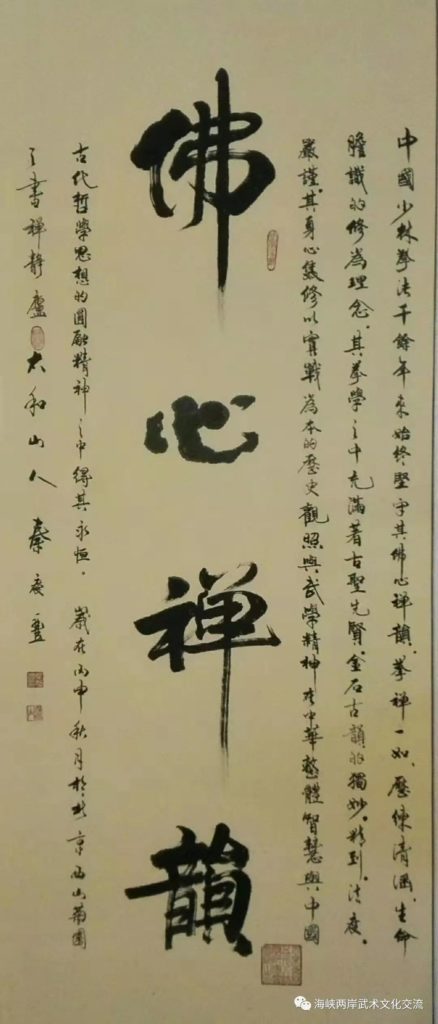 中國少林拳法千餘年来始终堅守其佛心禅韻。拳禅一如。歷練清涵。生命
膽識的修為理念。其拳學之中充滿著古聖先賢。金石古韻的獨妙。精到。法度。
嚴謹。其身心雙修以實戰為本的歷史觀照與武學精神在中華整體智慧與中國
佛心禅韻
古代哲學思想的圓融精神之中得其永恒。歲在丙申秋月於北京西山菊園
之書禅靜廬 太和山人 秦慶豐
海峡两岸武术文化交流